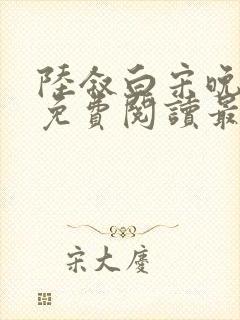 陸敘白宋晚
免費閱讀最
宋大慶